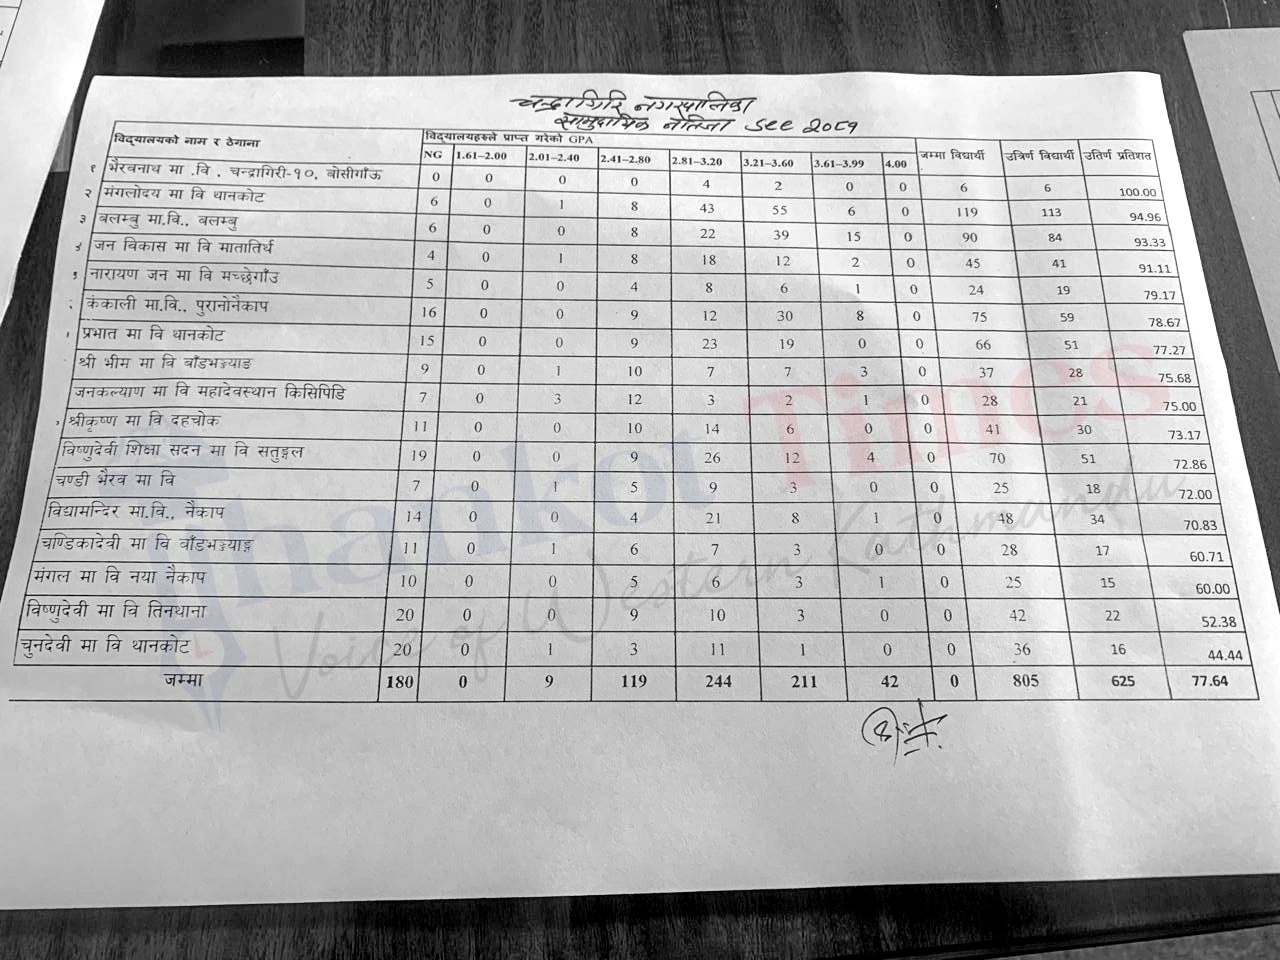 चन्द्रागिरि नगरपालिका
सामुदायिक नतिजा SEE 2081
विद्यालयको नाम र ठेगाना विद्यालयहरुले प्राप्त गरेको GPA जम्मा विद्यार्थी उत्रिर्ण विद्यार्थी उतिर्ण प्रतिशत
NG 1.61–2.00 2.01–2.40 2.41–2.80 2.81–3.20 3.21–3.60 3.61–3.99 4.00
१ भैरवनाथ मा .वि , चन्द्रागिरी-१०, बोसीगाँऊ 0 0 0 0 4 2 0 0 6 6 100.00
२ मंगलोदय मा वि थानकोट 6 0 1 8 43 55 6 0 119 113 94.96
३ बलम्बु मा.वि., बलम्बु 6 0 0 8 22 39 15 0 90 84 93.33
४ जन विकास मा वि मातातिर्थ 4 0 1 8 18 12 2 0 45 41 91.11
नारायण जन मा वि मच्छेगाँउ 5 0 0 4 8 6 1 0 24 19 79.17
कंकाली मा.वि., पुरानोनैकाप 16 0 0 9 12 30 8 0 75 59 78.67
प्रभात मा वि थानकोट 15 0 0 9 23 19 0 0 66 51 77.27
श्री भीम मा वि बाँडभञ्ज्याङ 9 0 1 10 7 7 3 0 37 28 75.68
जनकल्याण मा वि महादेवस्थान किसिपिडि 7 0 3 12 3 2 1 0 28 21 75.00
श्रीकृष्ण मा वि दहचोक 11 0 0 10 14 6 0 0 41 30 73.17
विष्णुदेवी शिक्षा सदन मा वि सतुङ्गल 19 0 0 9 26 12 4 0 70 51 72.86
चण्डी भैरव मा वि 7 0 1 5 9 3 0 0 25 18 72.00
विद्यामन्दिर मा.वि., नैकाप 14 0 0 4 21 8 1 0 48 34 70.83
चण्डिकादेवी मा वि बाँडभञ्ज्याङ्ग 11 0 1 6 7 3 0 0 28 17 60.71
मंगल मा वि नया नैकाप 10 0 0 5 6 3 1 0 25 15 60.00
विष्णुदेवी मा वि तिनथाना 20 0 0 9 10 3 0 0 42 22 52.38
चुनदेवी मा वि थानकोट 20 0 1 3 11 1 0 0 36 16 44.44
जम्मा 180 0 9 119 244 211 42 0 805 625 77.64
Thankot Times
Voice of Western Kathmandu